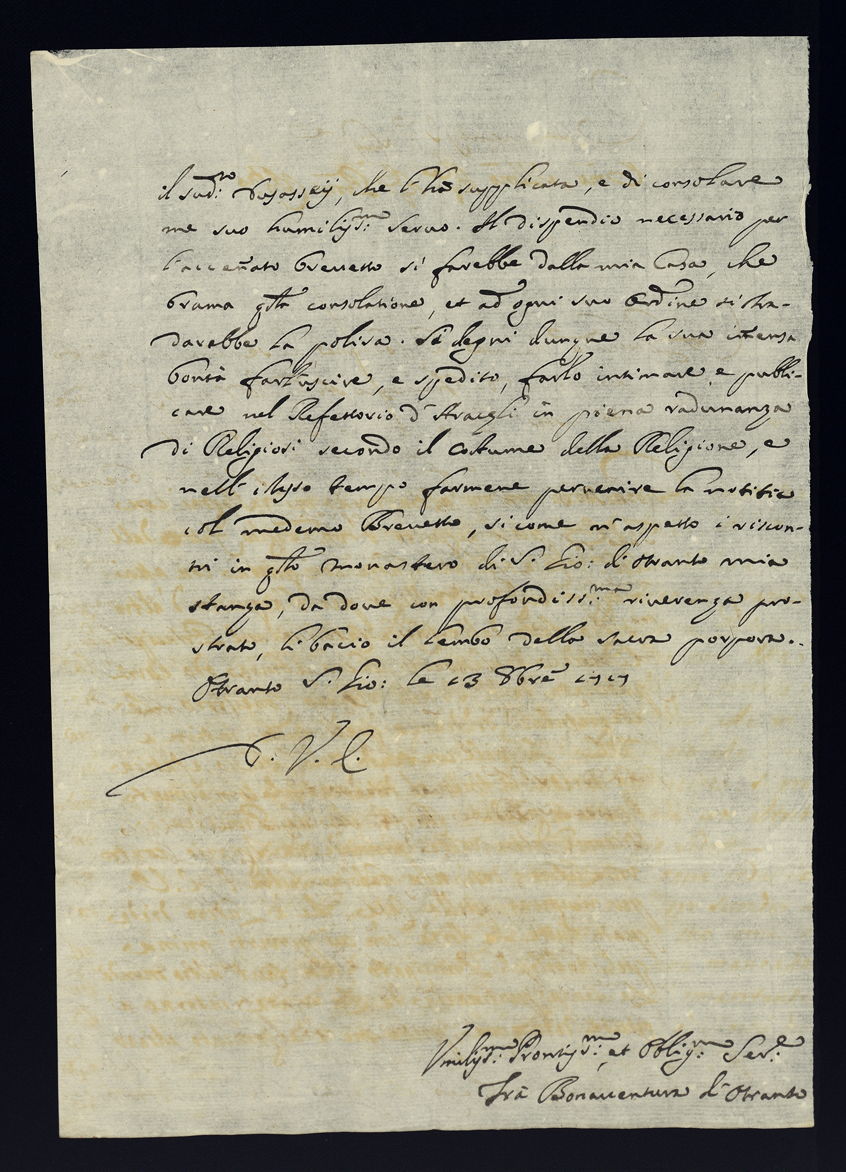 il sud.to che l'ha supplicata, e di consolare
me suo humiliss.mo Servo. Il dispendio necessario per
l'accen̄ato Brevetto si farebbe dalla mia Casa, che
brama q̄sta consolatione, et ad ogni suo Ordine si sba-
darebbe la polisa. Si degni dunque la sua im̄ensa
bontà farl'uscire, e spedito, farlo intimare e publi-
care nel Refettorio d'Aracęli in piena radunanza
di Religiosi secondo il costume della Religione, e
nell'istesso tempo farmene pervenire la notitia
col medemo Brevetto, si come n'aspetto i riscon-
tri in q̄sto monastero di S. Gio: di Otranto mia
stanza, da dove con profondiss:ma riverenza pro-
strato, li bacio il lembo della sacra porpora.
Otranto S. Gio: le 13 8bre 1717
D. V. E.
Umiliss:mo Prontiss:mo, et Oblig:mo Ser.e
Frà Bonaventura d'Otranto